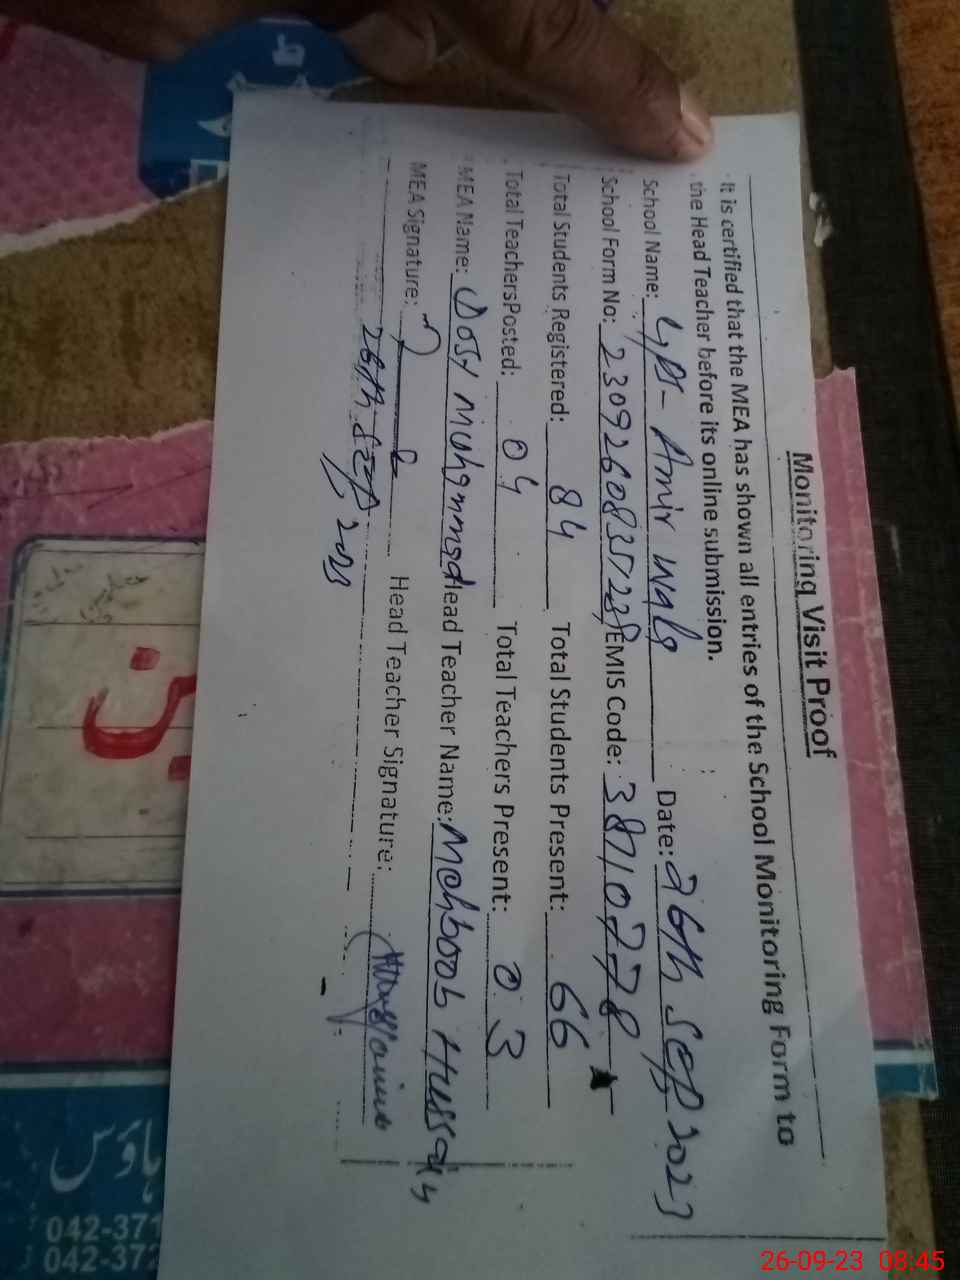 Monitoring Visit Proof
It is certified that the MEA has shown all entries of the School Monitoring Form to
the Head Teacher before its online submission.
School Name: GPS- Amir wala Date: 26th Sep 2023
School Form No: EMIS Code: 38710778
Total Students Registered: 84 Total Students Present: 66
Total TeachersPosted: 04 Total Teachers Present: 03
MEA Name: Dost Muhammad Head Teacher Name: Mehboob Hussain
MEA Signature: Head Teacher Signature:
26th Sep 2023
ہاؤس
042-371
042-372
26-09-23 08:45